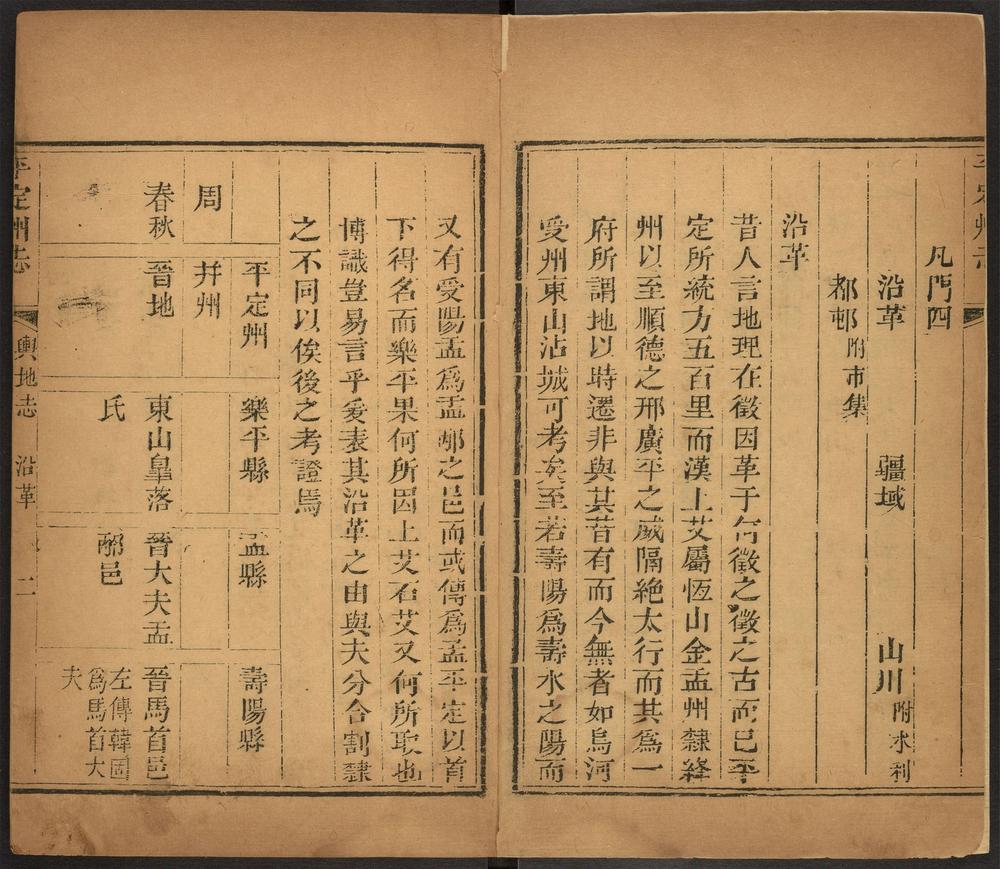 凡門四
沿革　疆域　山川附水利
都邨附市集
沿革
昔人言地理在徵因革于何徵之徵之古而已平
定所統方五百里而漢上艾屬恆山金盂州隸絳
州以至順德之邢廣平之威隔絶太行而其爲一
府所謂地以時遷非與其昔有而今無者如烏河
受州東山沾城可考矣至若壽陽爲壽水之陽而
又有受陽盂爲盂邴之邑而或傳爲盂平定以首
下得名而樂平果何所因上艾石艾又何所取也
博識豈易言乎爰表其沿革之由與夫分合割隸
之不同以俟後之考證焉
平定州　樂平縣　盂縣　壽陽縣
周　并州
春秋　晉地　東山臯落　晉大夫盂　晉馬首邑
氏　邴邑　左傳韓固
爲馬首大
夫
平定州志　輿地志　沿革　二